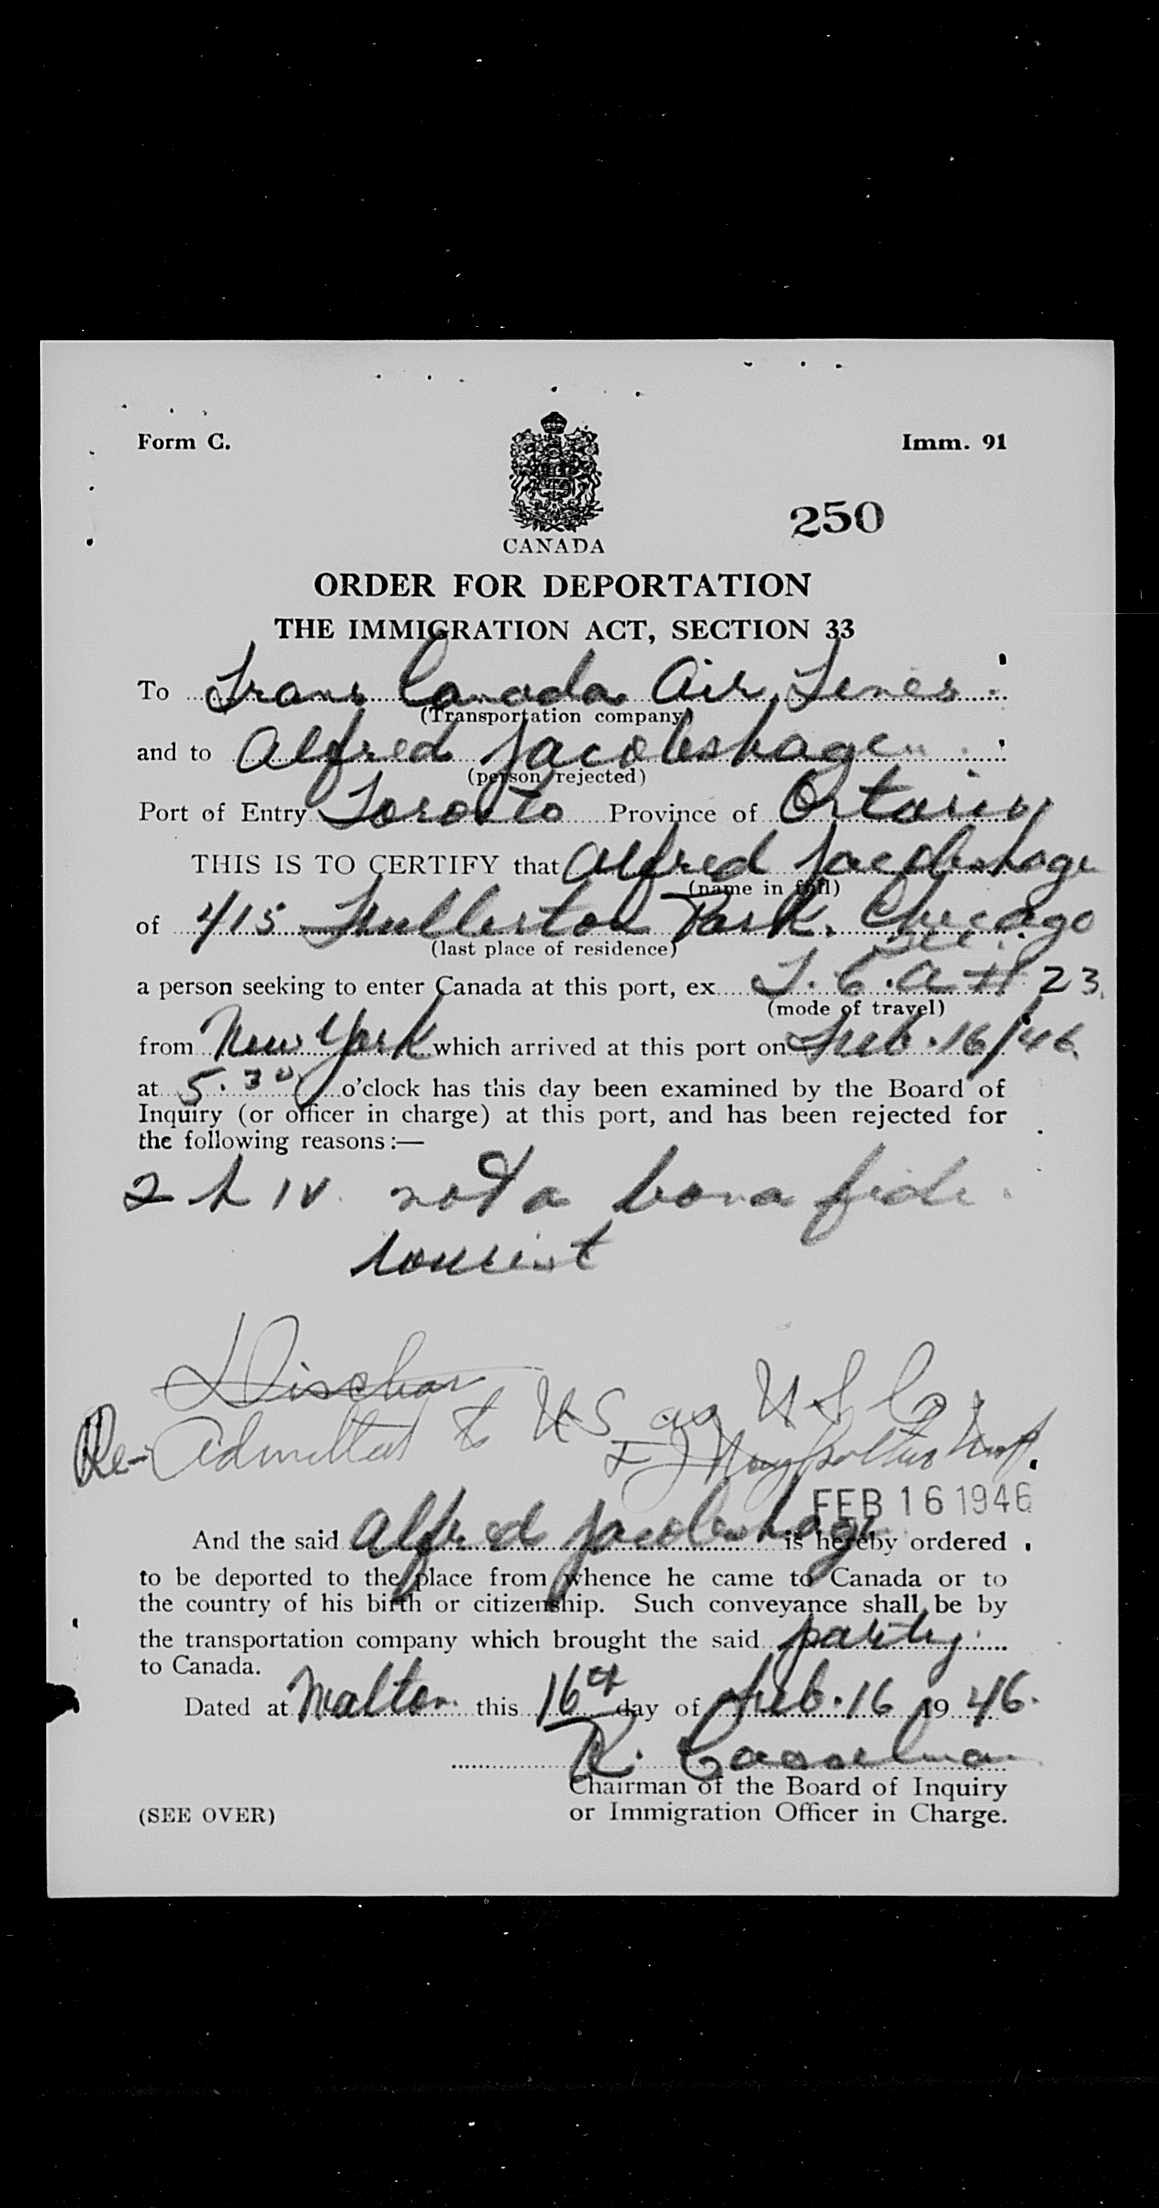 Form C.
Imm. 91
250
CANADA
ORDER FOR DEPORTATION
THE IMMIGRATION ACT, SECTION 33
To Trans Canada Air Lines
(Transportation company)
and to Alfred Jacobshagen
(person rejected)
Port of Entry Toronto Province of Ontario
THIS IS TO CERTIFY that Alfred Jacobshage
(name in full)
of 415 Fullerton Park. Chicago
Ill.
(last place of residence)
a person seeking to enter Canada at this port, ex T.C.A # 23
(mode of travel)
from New York which arrived at this port on Feb. 16/46
at 5.30 o'clock has this day been examined by the Board of
Inquiry (or officer in charge) at this port, and has been rejected for
the following reasons:—
not a bona fide
tourist
Dischar
Re-admitted to US as U S C
FEB 16 1946
And the said Alfred Jacobshage is hereby ordered
to be deported to the place from whence he came to Canada or to
the country of his birth or citizenship. Such conveyance shall be by
the transportation company which brought the said party
to Canada.
Dated at Malton this 16th day of Feb. 16 1946.
R. Casselman
Chairman of the Board of Inquiry
(SEE OVER) or Immigration Officer in Charge.